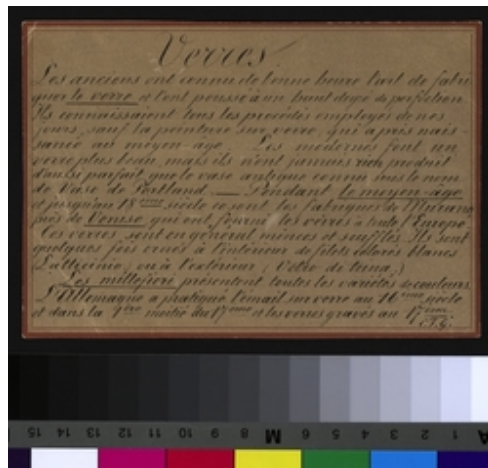 Verres
Les anciens ont connu de bonne heure l'art de fabri
quer le verre et l'ont poussé à un haut degré de perfection
Ils connaissaient tous les procédés employés de nos
jours, sauf la peinture sur verre, qui a pris nais-
sance au moyen-âge. Les modernes font un
verre plus beau, mais ils n'ont jamais rien produit
d'aussi parfait que le vase antique connu sous le nom
de Vase de Portland. — Pendant le moyen-âge
et jusqu'au 18ème siècle ce sont les fabriques de Murano
près de Venise, qui ont fourni les verres à toute l'Europe.
Ces verres sont en général minces et soufflés. Ils sont
quelques fois ornés à l'intérieur de filets colorés blancs
Latticinio, ou à l'extérieur (Vetro di trina.)
Les millefiori présentent toutes les variétés de couleurs.
L'Allemagne a pratiqué l'émail sur verre au 16ème siècle
et dans la 1ère moitié du 17ème et les verres gravés au 17ème
15 14 13 12 11 10 9 8 M 6 5 4 3 2 1 A